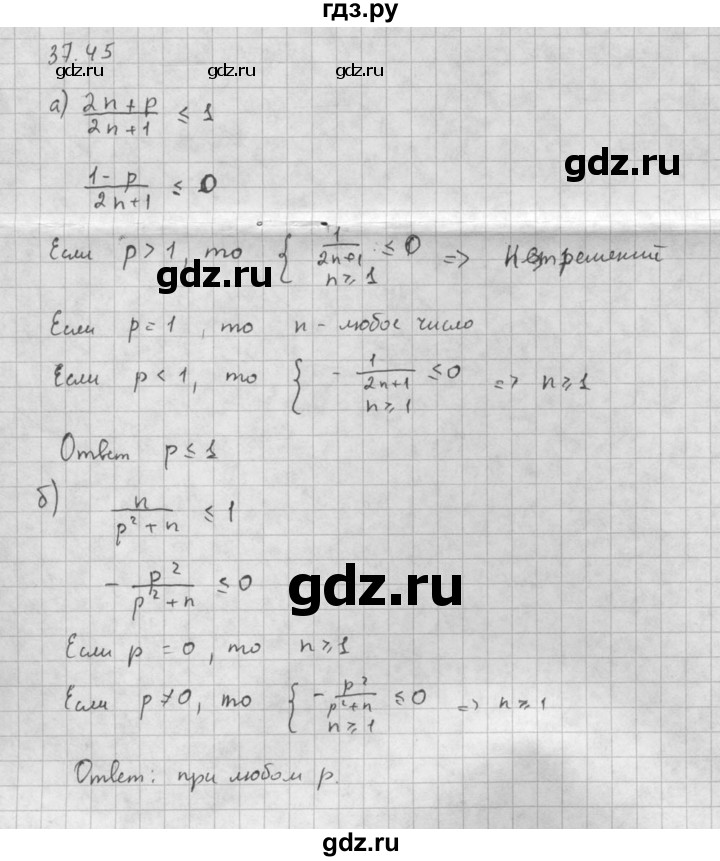 гдз.ру
37.45
gdz.ru gdz.ru gdz.ru
а) (2n + p)/(2n + 1) ≤ 1
gdz.ru
(1 - p)/(2n+1) ≤ 0
Если p > 1, то { 1/(2n+1) ≤ 0 => Нет решений
n ≥ 1
gdz.ru
Если p = 1, то n - любое число
Если p < 1, то { - 1/(2n+1) ≤ 0 => n ≥ 1
n ≥ 1
Ответ p ≤ 1
б)
n/(p² + n) ≤ 1
- p²/(p² + n) ≤ 0
gdz.ru
Если p = 0, то n ≥ 1
Если p ≠ 0, то { - p²/(p²+n) ≤ 0 => n ≥ 1
n ≥ 1
Ответ: при любом p.
gdz.ru